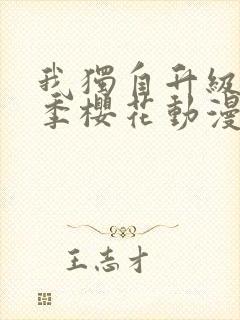 我獨自升級
季櫻花動漫
王志才